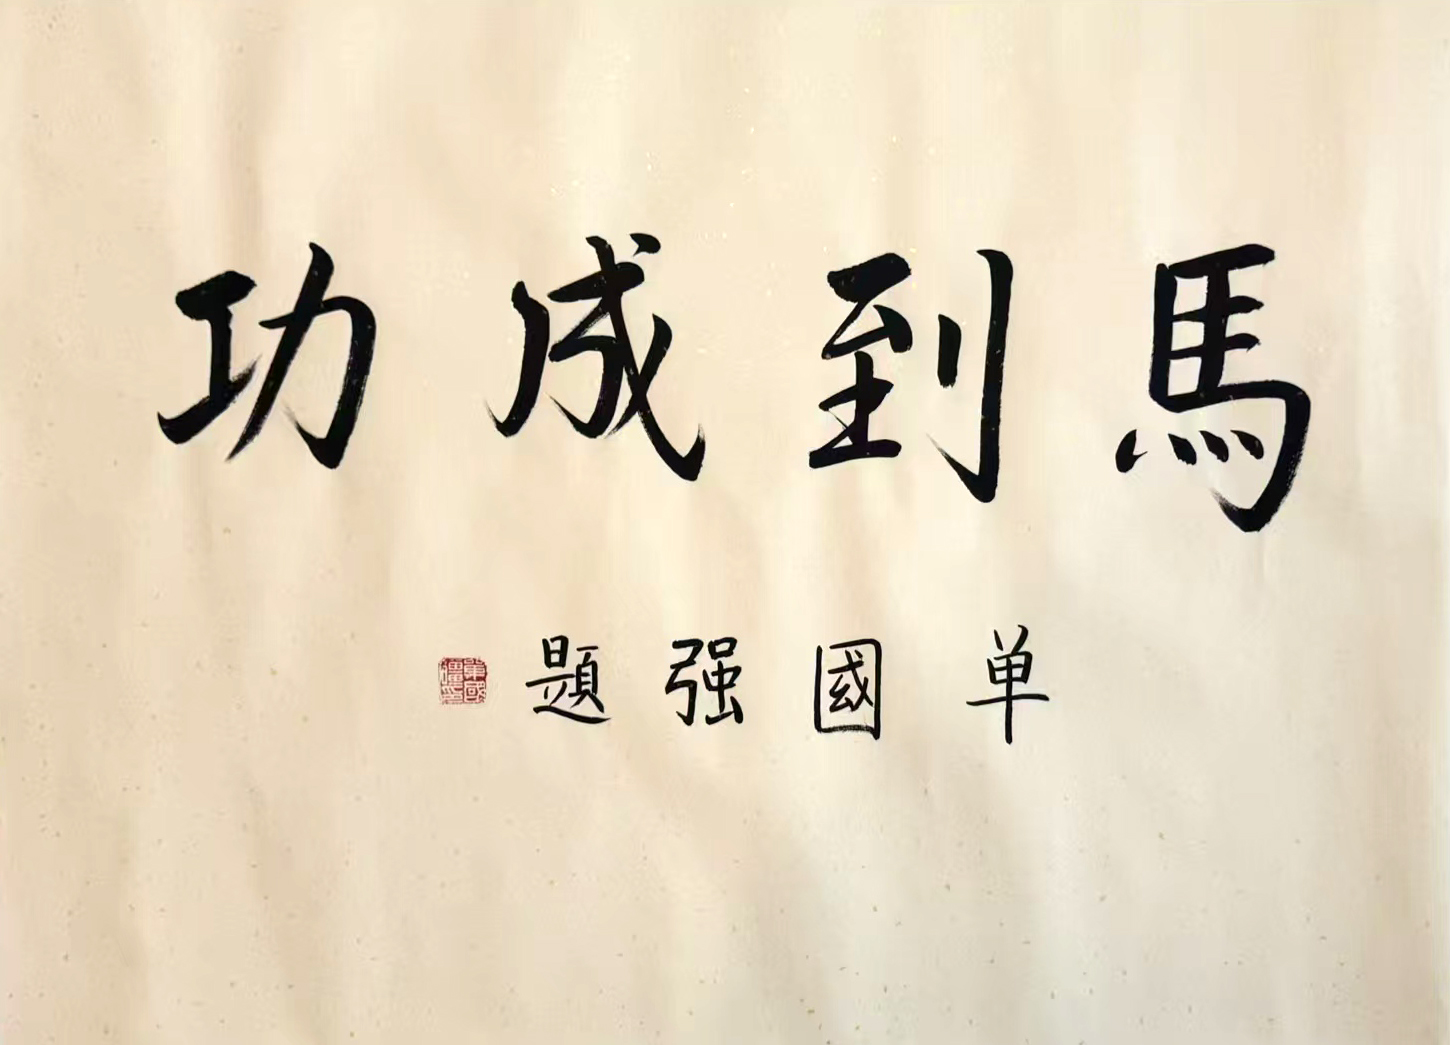 馬到成功
单國强題